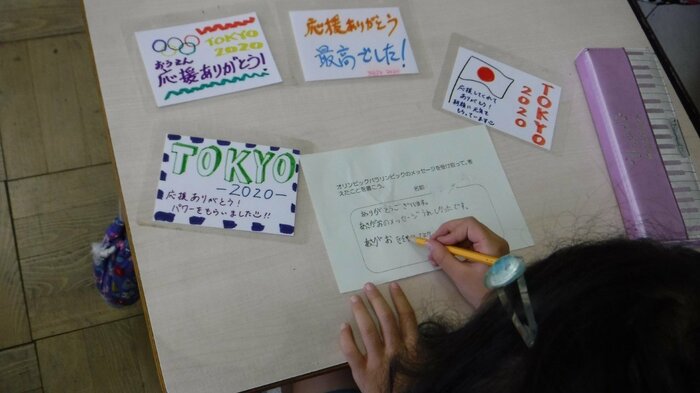 TOKYO
2020
おうえん
応援ありがとう!
応援ありがとう
最高でした!
TOKYO 2020
応援してくれて
ありがとう!
TOKYO
2020
TOKYO
-2020-
応援ありがとう!
パワーをもらいました!!
オリンピックパラリンピックのメッセージを受け取って、考
えたことを書こう。
名前
ありがとうございます。
あさがおのメッセージうれしかったです。
あさがお